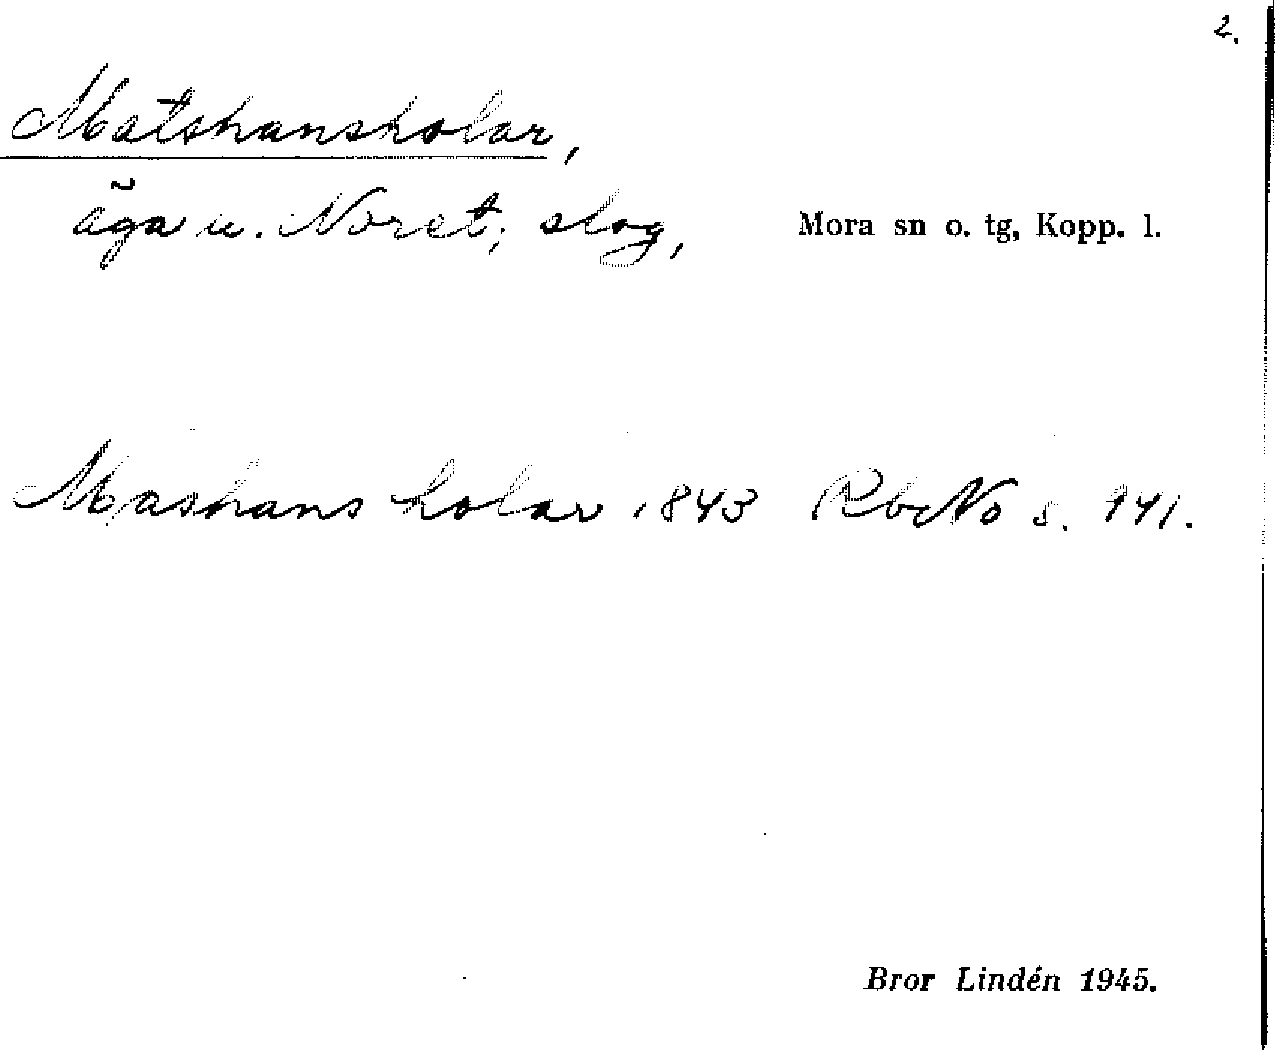 2.
Matshansholar,
äga u. Noret; slog, Mora sn o. tg, Kopp. l.
Mashans holar 1843 RbNo s. 941.
Bror Lindén 1945.